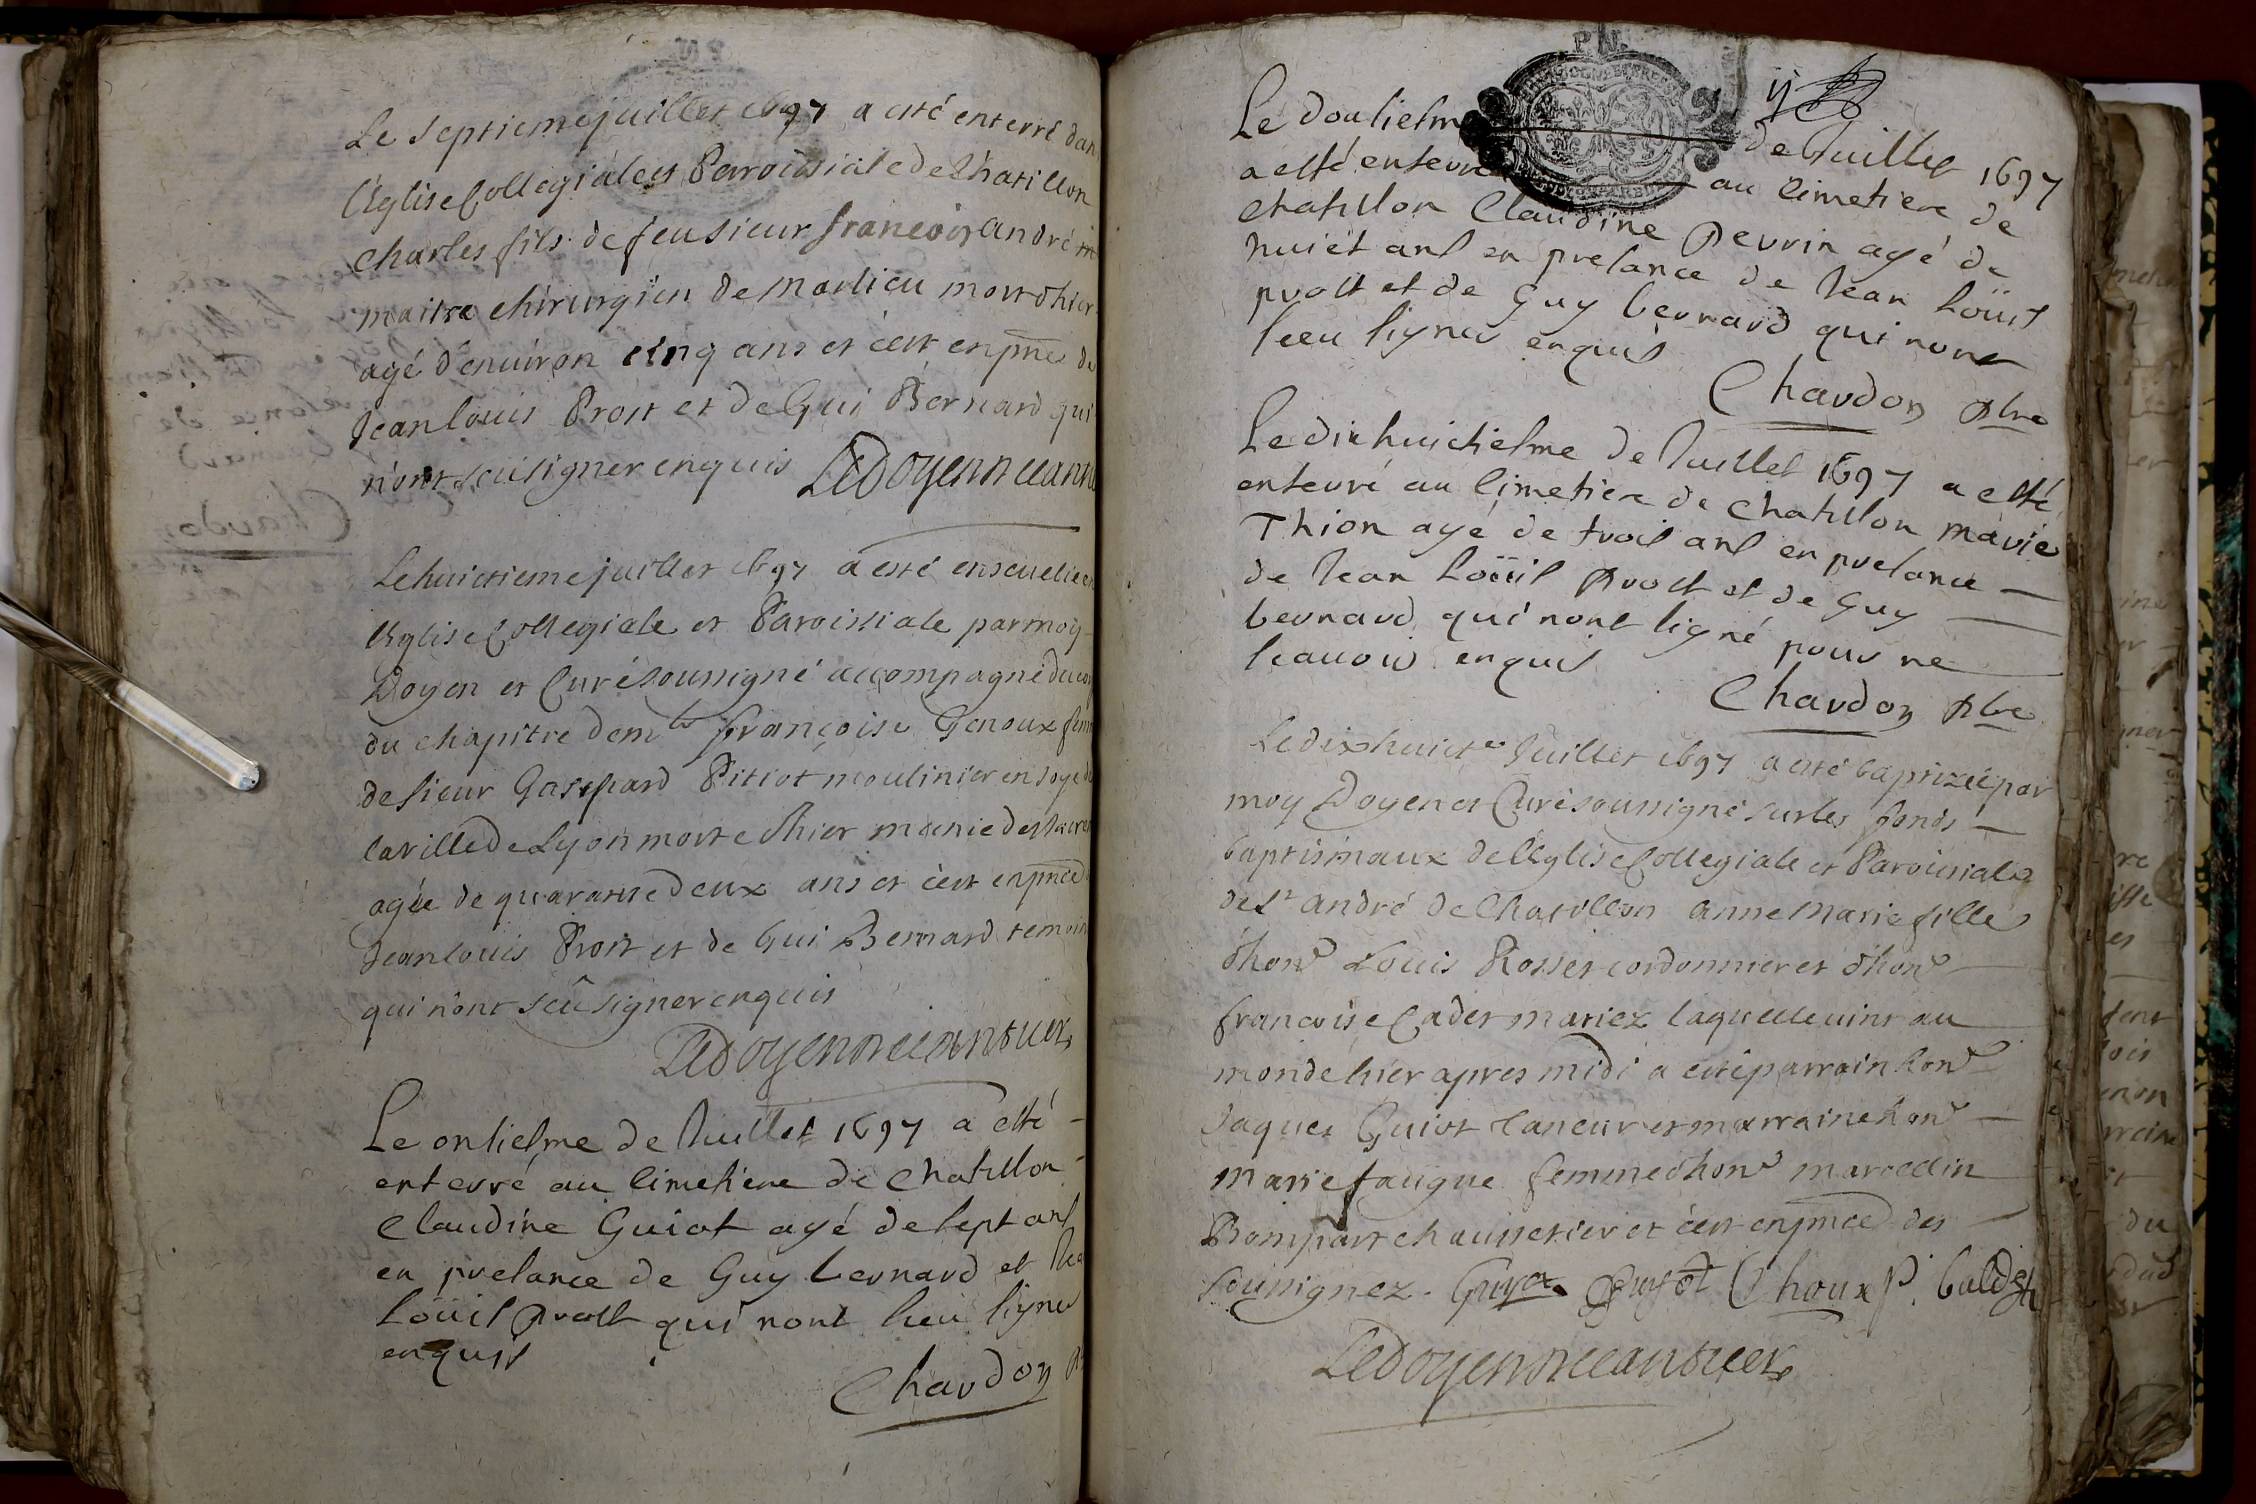 Le septieme juillet 1697 a esté enterré dan
l'Eglise Collegiale et Paroissiale de Chatillon
Charles fils de feu sieur francois andré
maitre chirurgien de Marlieu mort d'hier
agé d'enuiron cinq ans et c'est en pnce de
Jean louis Prost et de Gui Bernard qui
n'ont sceu signer enquis Le Doyen
Le huictieme juillet 1697 a esté enseuelie en
l'Eglise Collegiale et Paroissiale par moy
Doyen et Curé soussigné accompagné du
du chapitre dem.lle françoise Genoux fem
de sieur Gaspard Pitiot moulinier en soye de
la ville de Lyon morte d'hier munie des sacre
agée de quarante deux ans et c'est en pnce d
Jean louis Prost et de Gui Bernard temoin
qui n'ont sceû signer enquis
Le Doyen
Le onsiesme de Juillet 1697 a esté -
enterré au simetiere de chatillon
Claudine Guiot agé de sept ans
en presance de Guy bernard et Jea
Loüis prost qui nont sceu signer
enquis
Chardon
P. N.
ij
Le dousiesme de Juillet 1697
a esté enterré au simetiere de
chatillon Claudine perrin agé de
huiét ans en presance de Jean Loüis
prost et de Guy bernard qui nont
sceu signer enquis
Chardon pbre
Le dix huictiesme de Juillet 1697 a esté
enterré au simetiere de chatillon marie
Thion agé de trois ans en presance —
de Jean Loüis prost et de Guy —
bernard qui nont signé pour ne
scauoir enquis
Chardon pbre
Le dix huict.e Juillet 1697 a esté baptizée par
moy Doyen et Curé soussigné sur les fonds —
baptismaux de l'Eglise Collegiale et Paroissiale
de St andré de Chatillon anne Marie fille
d'hon. Louis Rosset cordonnier et d'hon.
francoise Cadet mariez laquelle uint au
monde hier apres midi a esté parrain hon.
Jaques Guiot taneur et marraine hon. —
Marie faugue femme d'hon. marcellin
Bompart chaussetier et c'est en pnce des —
soussignez. Guyot Choux
Le Doyen